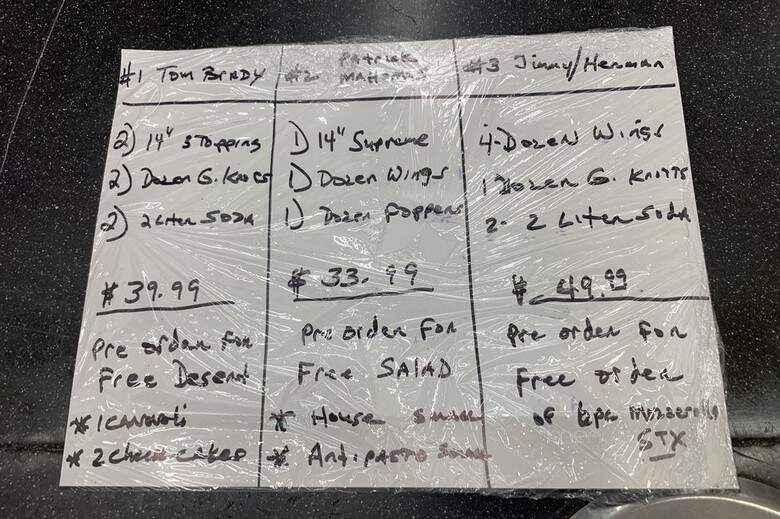 #1 Tom Brady
2) 14" 3 Topping
2) Dozen G. Knots
2) 2 Liter SODA
$39.99
Pre order for
Free Desert
* 1 Cannoli
* 2 Choco cakes
#2 Patrick
Mahomes
1) 14" Supreme
1) Dozen Wings
1) Dozen Poppers
$33.99
Pre order For
Free SALAD
* House Small
* Antipasto Small
#3 Jimmy/Herman
4-Dozen Wings
1 Dozen G. Knotts
2- 2 Liter Soda
$49.99
Pre order for
Free order
of 6pc Mozzerella
STX